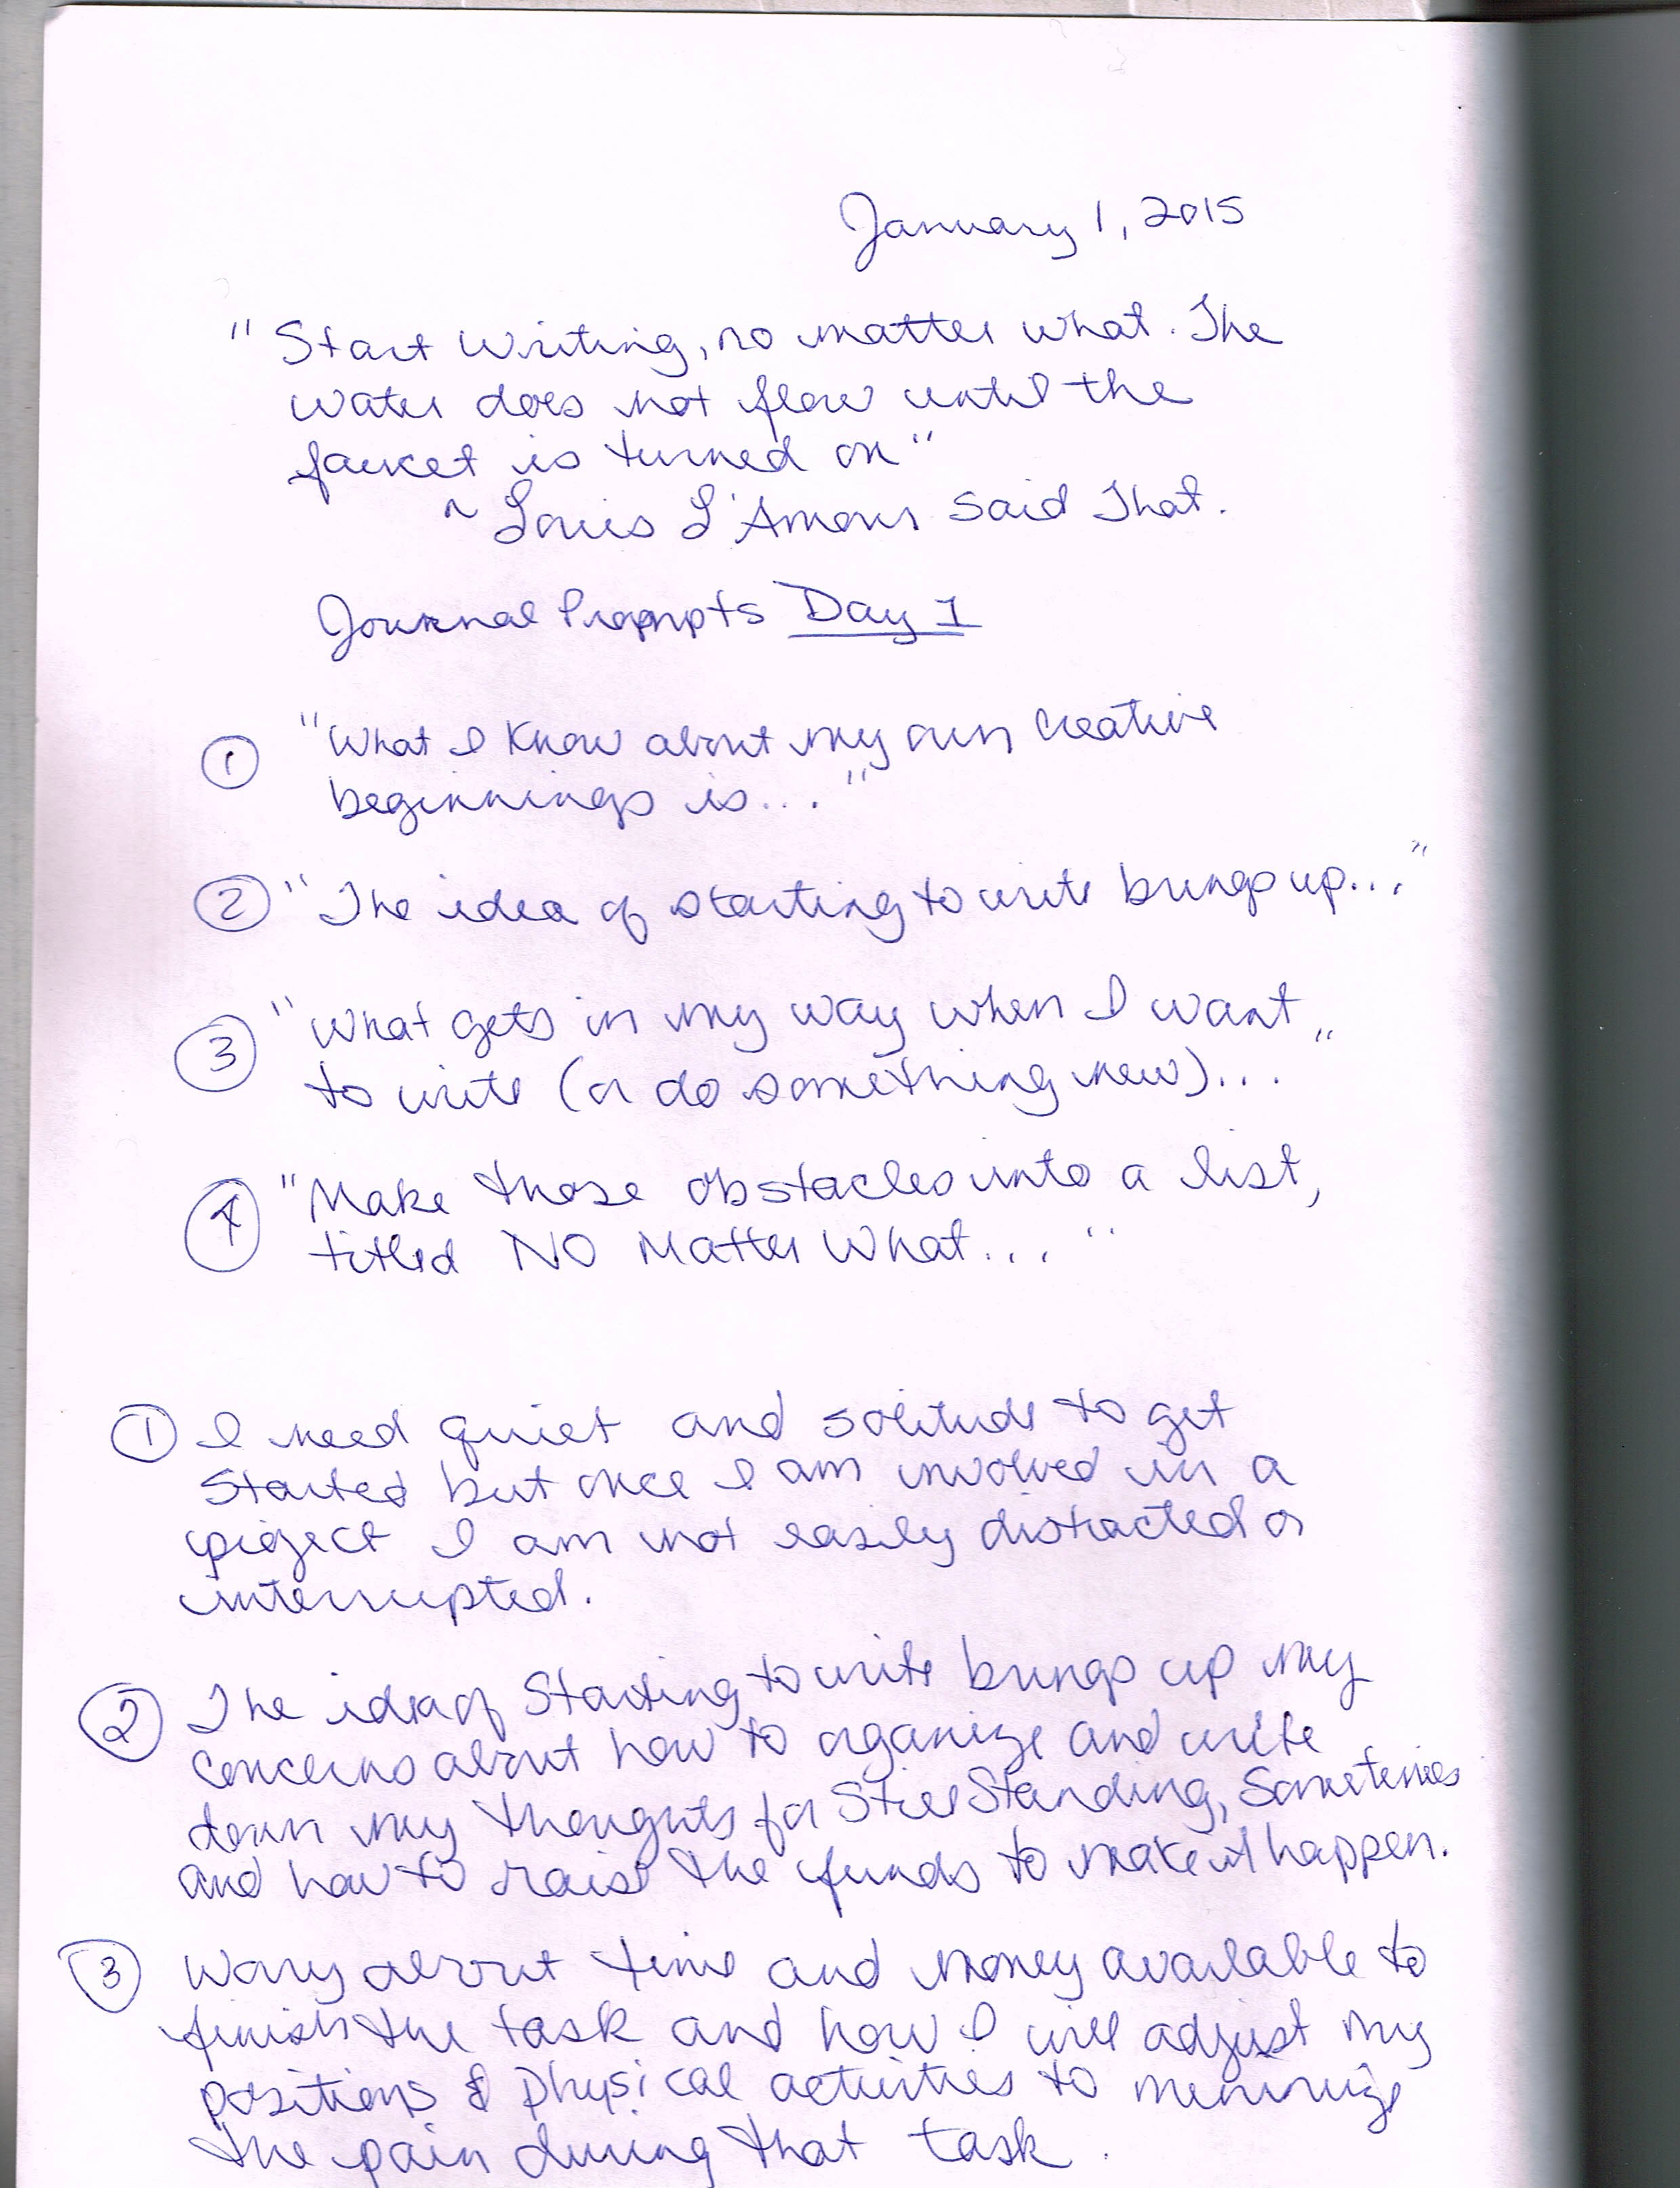 January 1, 2015
"Start writing, no matter what. The
water does not flow until the
faucet is turned on"
~ Louis L'Amour said That.
Journal Prompts Day 1
① "What I know about my own creative
beginnings is..."
② "The idea of starting to write brings up..."
③ "What gets in my way when I want
to write (or do something new)..."
④ "Make those obstacles into a list,
titled NO Matter What..."
① I need quiet and solitude to get
started but once I am involved in a
project I am not easily distracted or
interrupted.
② The idea of Starting to write brings up my
concerns about how to organize and write
down my thoughts for Still Standing, Sometimes
and how to raise the funds to make it happen.
③ Worry about time and money available to
finish the task and how I will adjust my
positions & physical activities to minimize
the pain during that task.